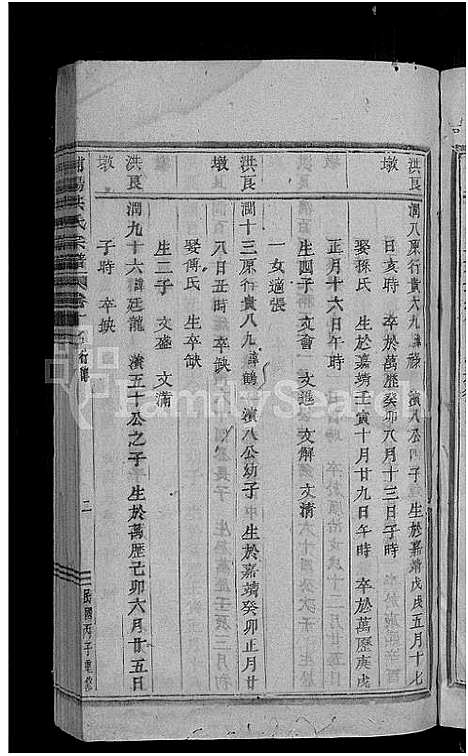 洪良墩
潤八 原行貴大九 諱祿 演八公四子 生於嘉靖戊戌五月十七
日亥時 卒於萬歷癸卯八月十三日子時
娶孫氏 生於嘉靖壬寅十月廿九日午時 卒於萬歷庚戌
正月十六日午時
生四子 文會 文進 文解 文清
一女適張
洪良墩
潤十三 原行貴八九 諱鶴 演八公幼子 生於嘉靖癸卯正月廿
八日丑時 卒缺
娶傅氏 生卒缺
生二子 文盛 文滿
洪良墩
潤九十六 諱廷龍 演五十公之子 生於萬歷己卯六月廿五日
子時 卒缺
浦陽洪氏宗譜 行傳 二 民國丙子重修
FamilySearch